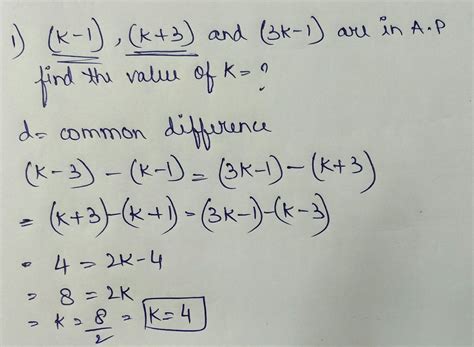 1) (k-1), (k+3) and (3k-1) are in A.P
find the value of k= ?
d= common difference
(k-3) - (k-1) = (3k-1) - (k+3)
= (k+3)-(k+1) = (3k-1)-(k-3)
= 4 = 2k-4
= 8 = 2k
= k = 8/2 = k=4